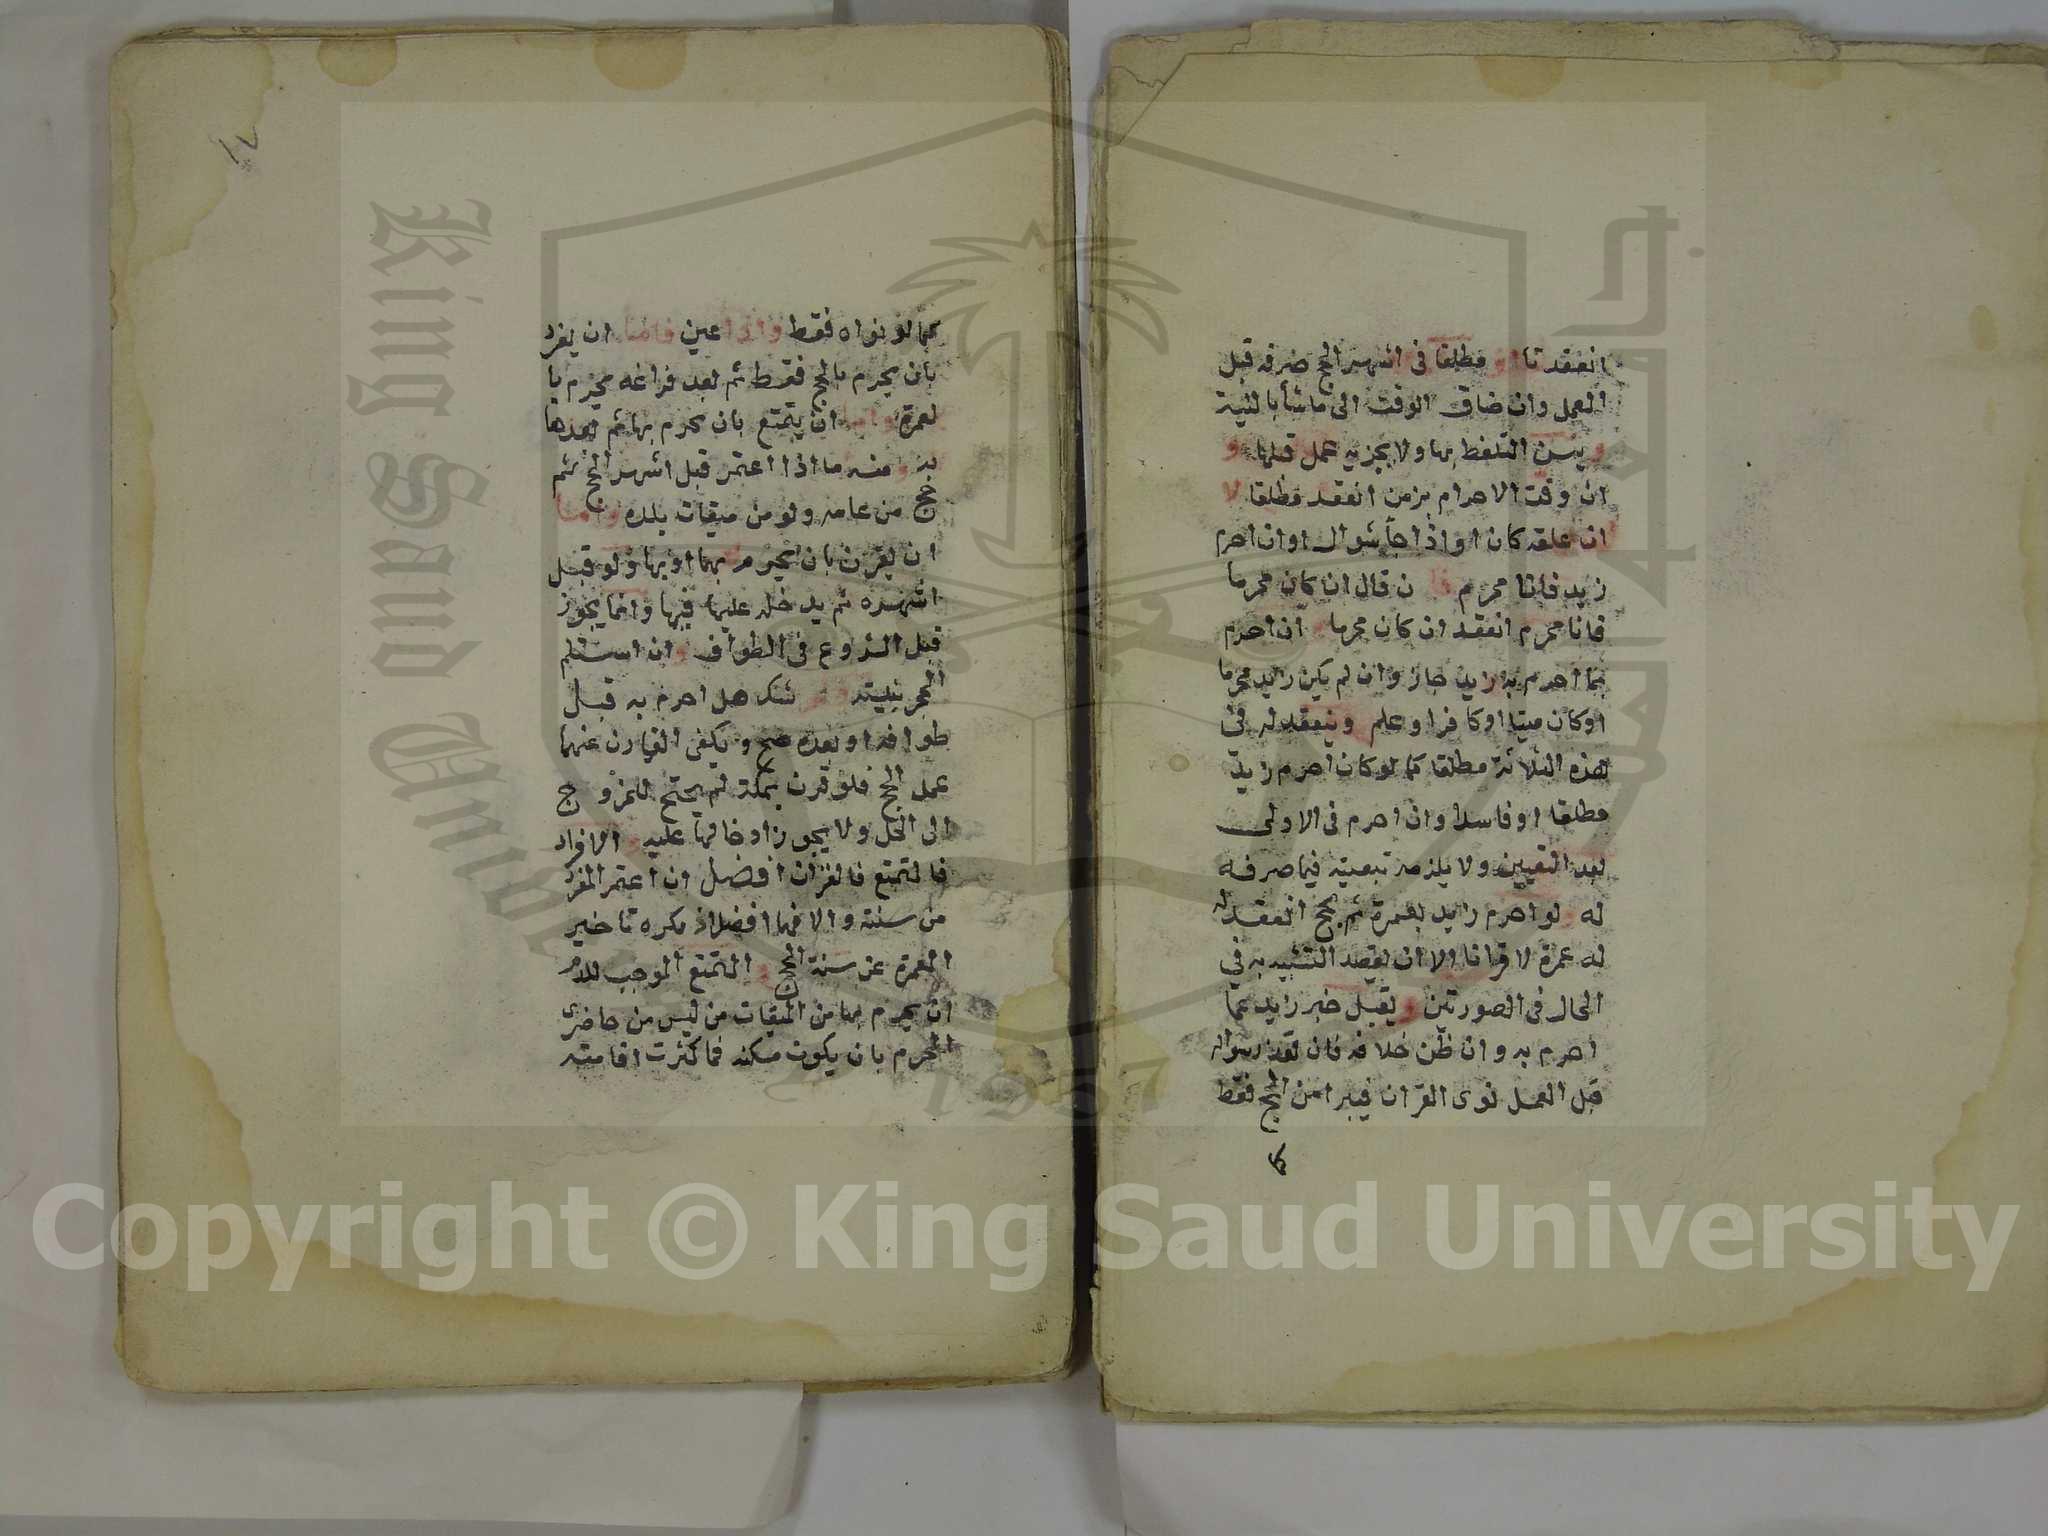 انعقدتا او مطلقا فى اشهر الحج صرفه قبل
العمل وان ضاق الوقت الى ما شأ بالنية
و يسن التلفظ بها ولا يجزيه عمل قبلها و
ان وقت الاحرام بزمن انعقد مطلقا لا
ان علقه كان او اذا جأ شوال او ان احرم
زيد فانا محرم فا ن قال ان كان محرما
فانا محرم انعقد ان كان محرما و ان احرم
بما احرم به زايد جاز وان لم يكن زايد محرما
او كان ميتا او كافرا وعلم وينعقد له فى
هذه الثلاثة مطلقا كما لو كان احرم زايد
مطلقا او فاسدا وان احرم فى الاولى
بعد التعيين ولا يلزمه تبعيته فيما صرفه
له ولو احرم زايد بعمرة ثم بحج انعقد له
له عمرة لا قرانا الا ان يقصد التشبيه به في
الحال فى الصورتين و يقبل خبر زايد عما
احرم به وان ظن خلافه فان تعذر سواله
قبل العمل نوى القران فيبرا من الحج فقط
كما
١٧
كما لو نواه فقط واذا عين فاما ان يفرد
بان يحرم بالحج فقط ثم بعد فراغه يحرم با
لعمرة واما ان يتمتع بان يحرم بها ثم بعدها
به و منه ما اذا اعتمر قبل اشهر الحج ثم
حج من عامه ولو من ميقات بلده واما
ان يقرن بان يحرم بهما او بها ولو قبل
اشهره ثم يدخله عليها فيها وانما يجوز
قبل الشروع فى الطواف وان استلم
الحجر بنيته شك هل احرم به قبل
طوافه او بعده صح ويكفى القارن عنهما
عمل الحج فلو قرن بمكة لم يحتج للخروج
الى الحل ولا يجوز ادخالها عليه و الافراد
فالتمتع فالقران افضل ان اعتمر المفرد
من سنته والا فهما افضل اذ يكره تاخير
العمرة عن سنة الحج و التمتع الموجب للدم
ان يحرم بها من الميقات من ليس من حاضرى
الحرم بان يكون مسكنه فما كثرت اقامته
King Saud University
1957
Copyright © King Saud University